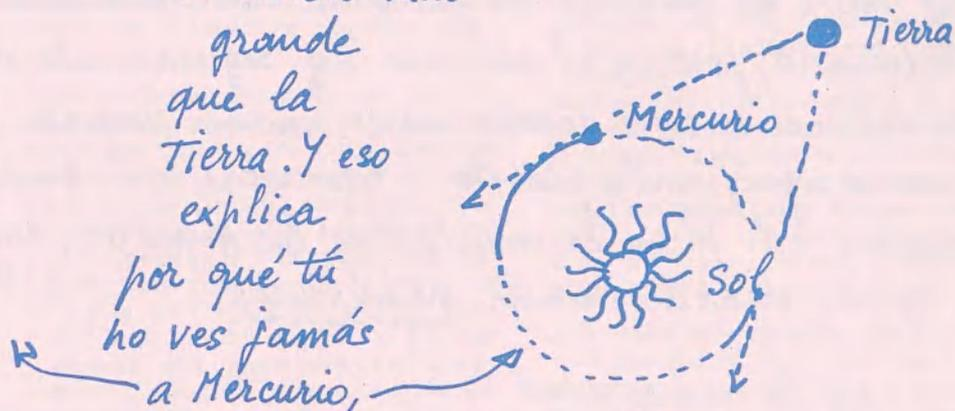 grande
que la
Tierra. Y eso
explica
por qué tú
no ves jamás
a Mercurio,
Tierra
Mercurio
Sol